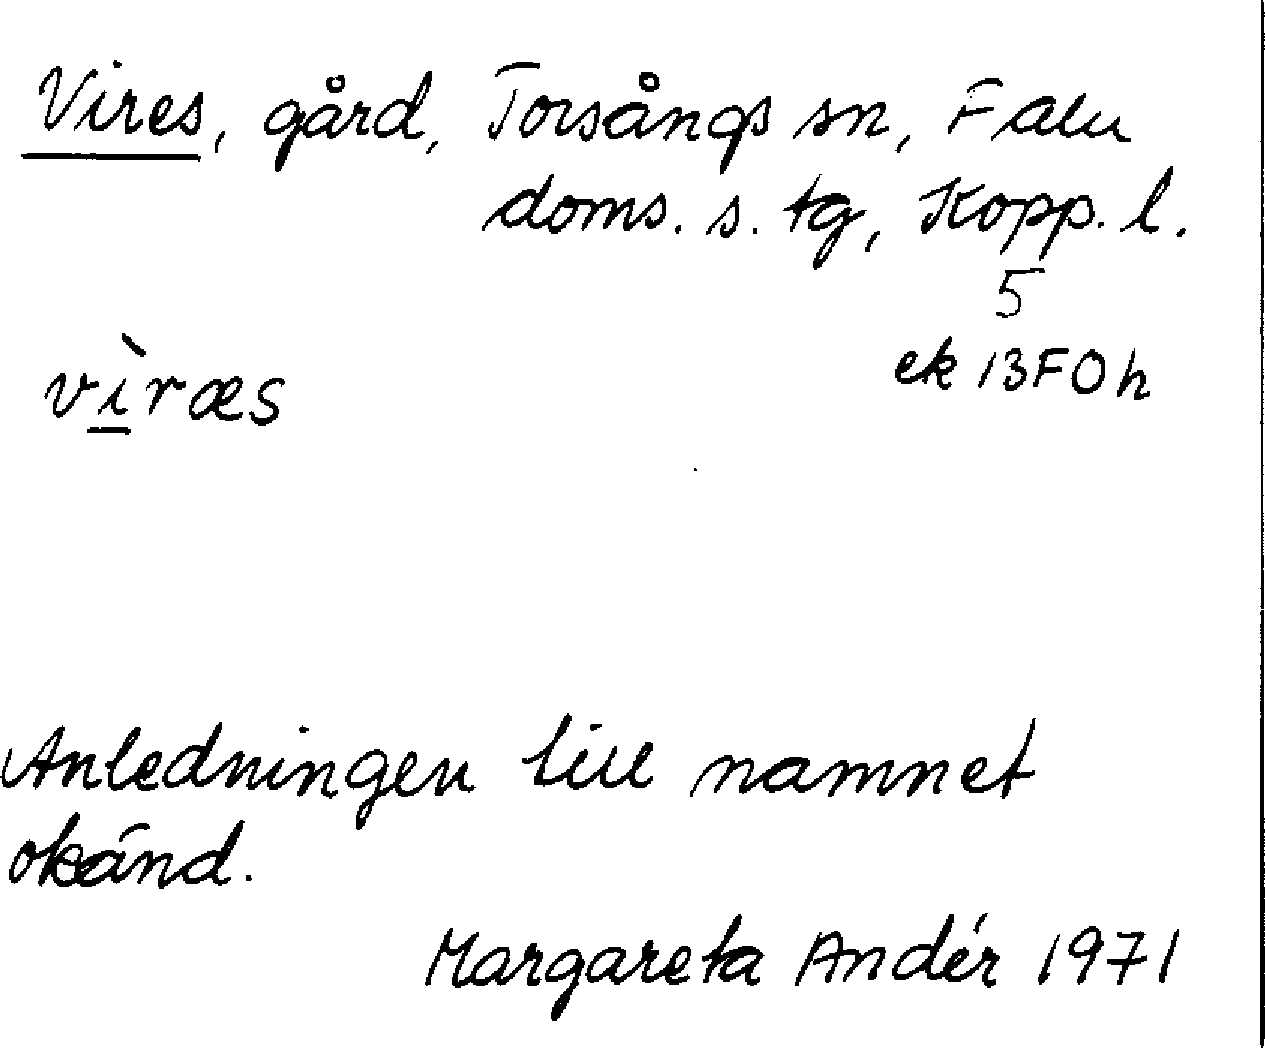 Vires, gård, Torsångs sn, Falu
doms. s. tg, Kopp. l.
5
ek 13F0h
vìræs
Anledningen till namnet
okänd.
Margareta Andér 1971